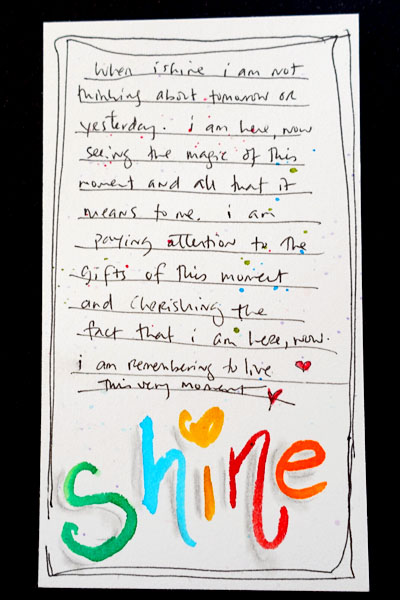 When i shine i am not
thinking about tomorrow or
yesterday. i am here, now
seeing the magic of this
moment and all that it
means to me. i am
paying attention to the
gifts of this moment
and cherishing the
fact that i am here, now.
i am remembering to live
This very moment
shine